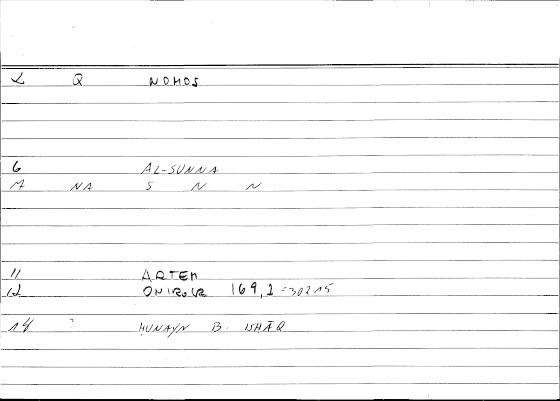 2 Q NOMOS
6 AL-SUNNA
7 NA S N N
11 ARTEM
12 ONIROCR 169,2 = 302 15
14 ? HUNAYN B. ISHĀQ